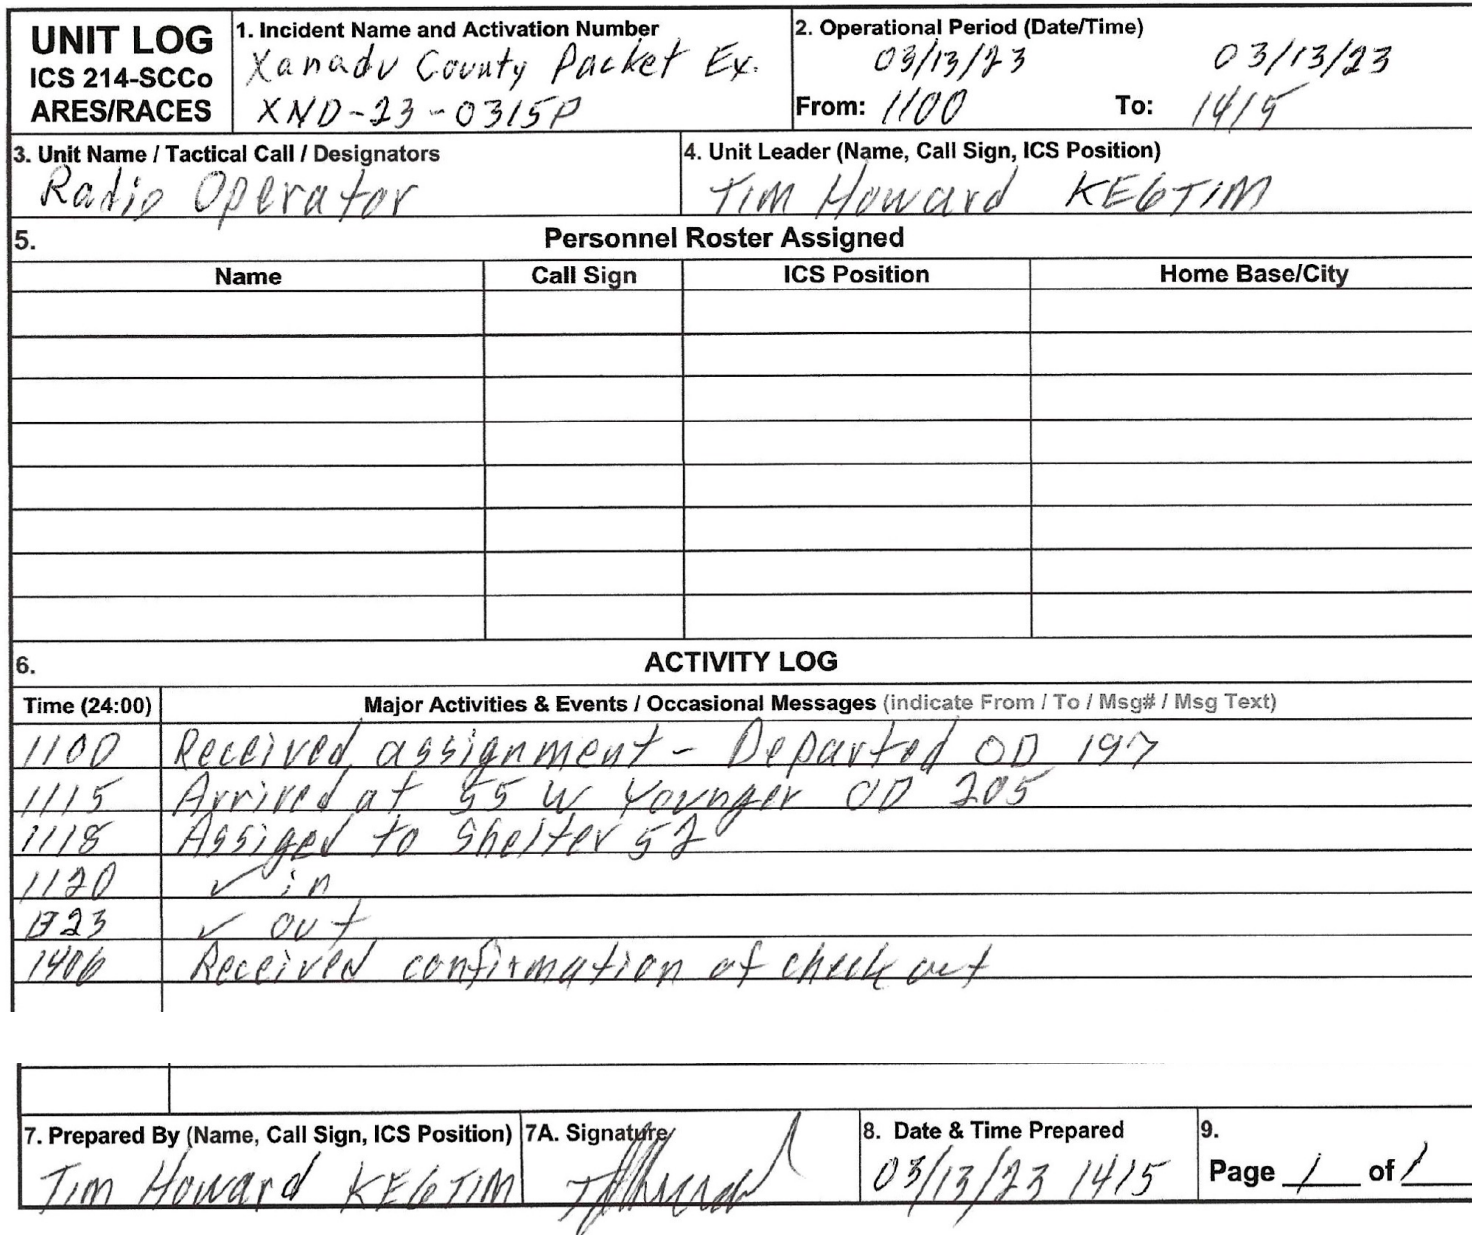 UNIT LOG
ICS 214-SCCo
ARES/RACES
1. Incident Name and Activation Number
Xanadu County Packet Ex.
XND-23-0315P
2. Operational Period (Date/Time)
03/13/23 03/13/23
From: 1100 To: 1415
3. Unit Name / Tactical Call / Designators
Radio Operator
4. Unit Leader (Name, Call Sign, ICS Position)
Tim Howard KE6TIM
5. Personnel Roster Assigned
Name Call Sign ICS Position Home Base/City
6. ACTIVITY LOG
Time (24:00) Major Activities & Events / Occasional Messages (indicate From / To / Msg# / Msg Text)
1100 Received assignment - Departed OD 197
1115 Arrived at 55 W Younger OD 205
1118 Assiged to Shelter 52
1120 ✓ in
✓ out
1406 Received confirmation of check out
7. Prepared By (Name, Call Sign, ICS Position)
Tim Howard KE6TIM
7A. Signature
8. Date & Time Prepared
03/13/23 1415
9.
Page 1 of 1